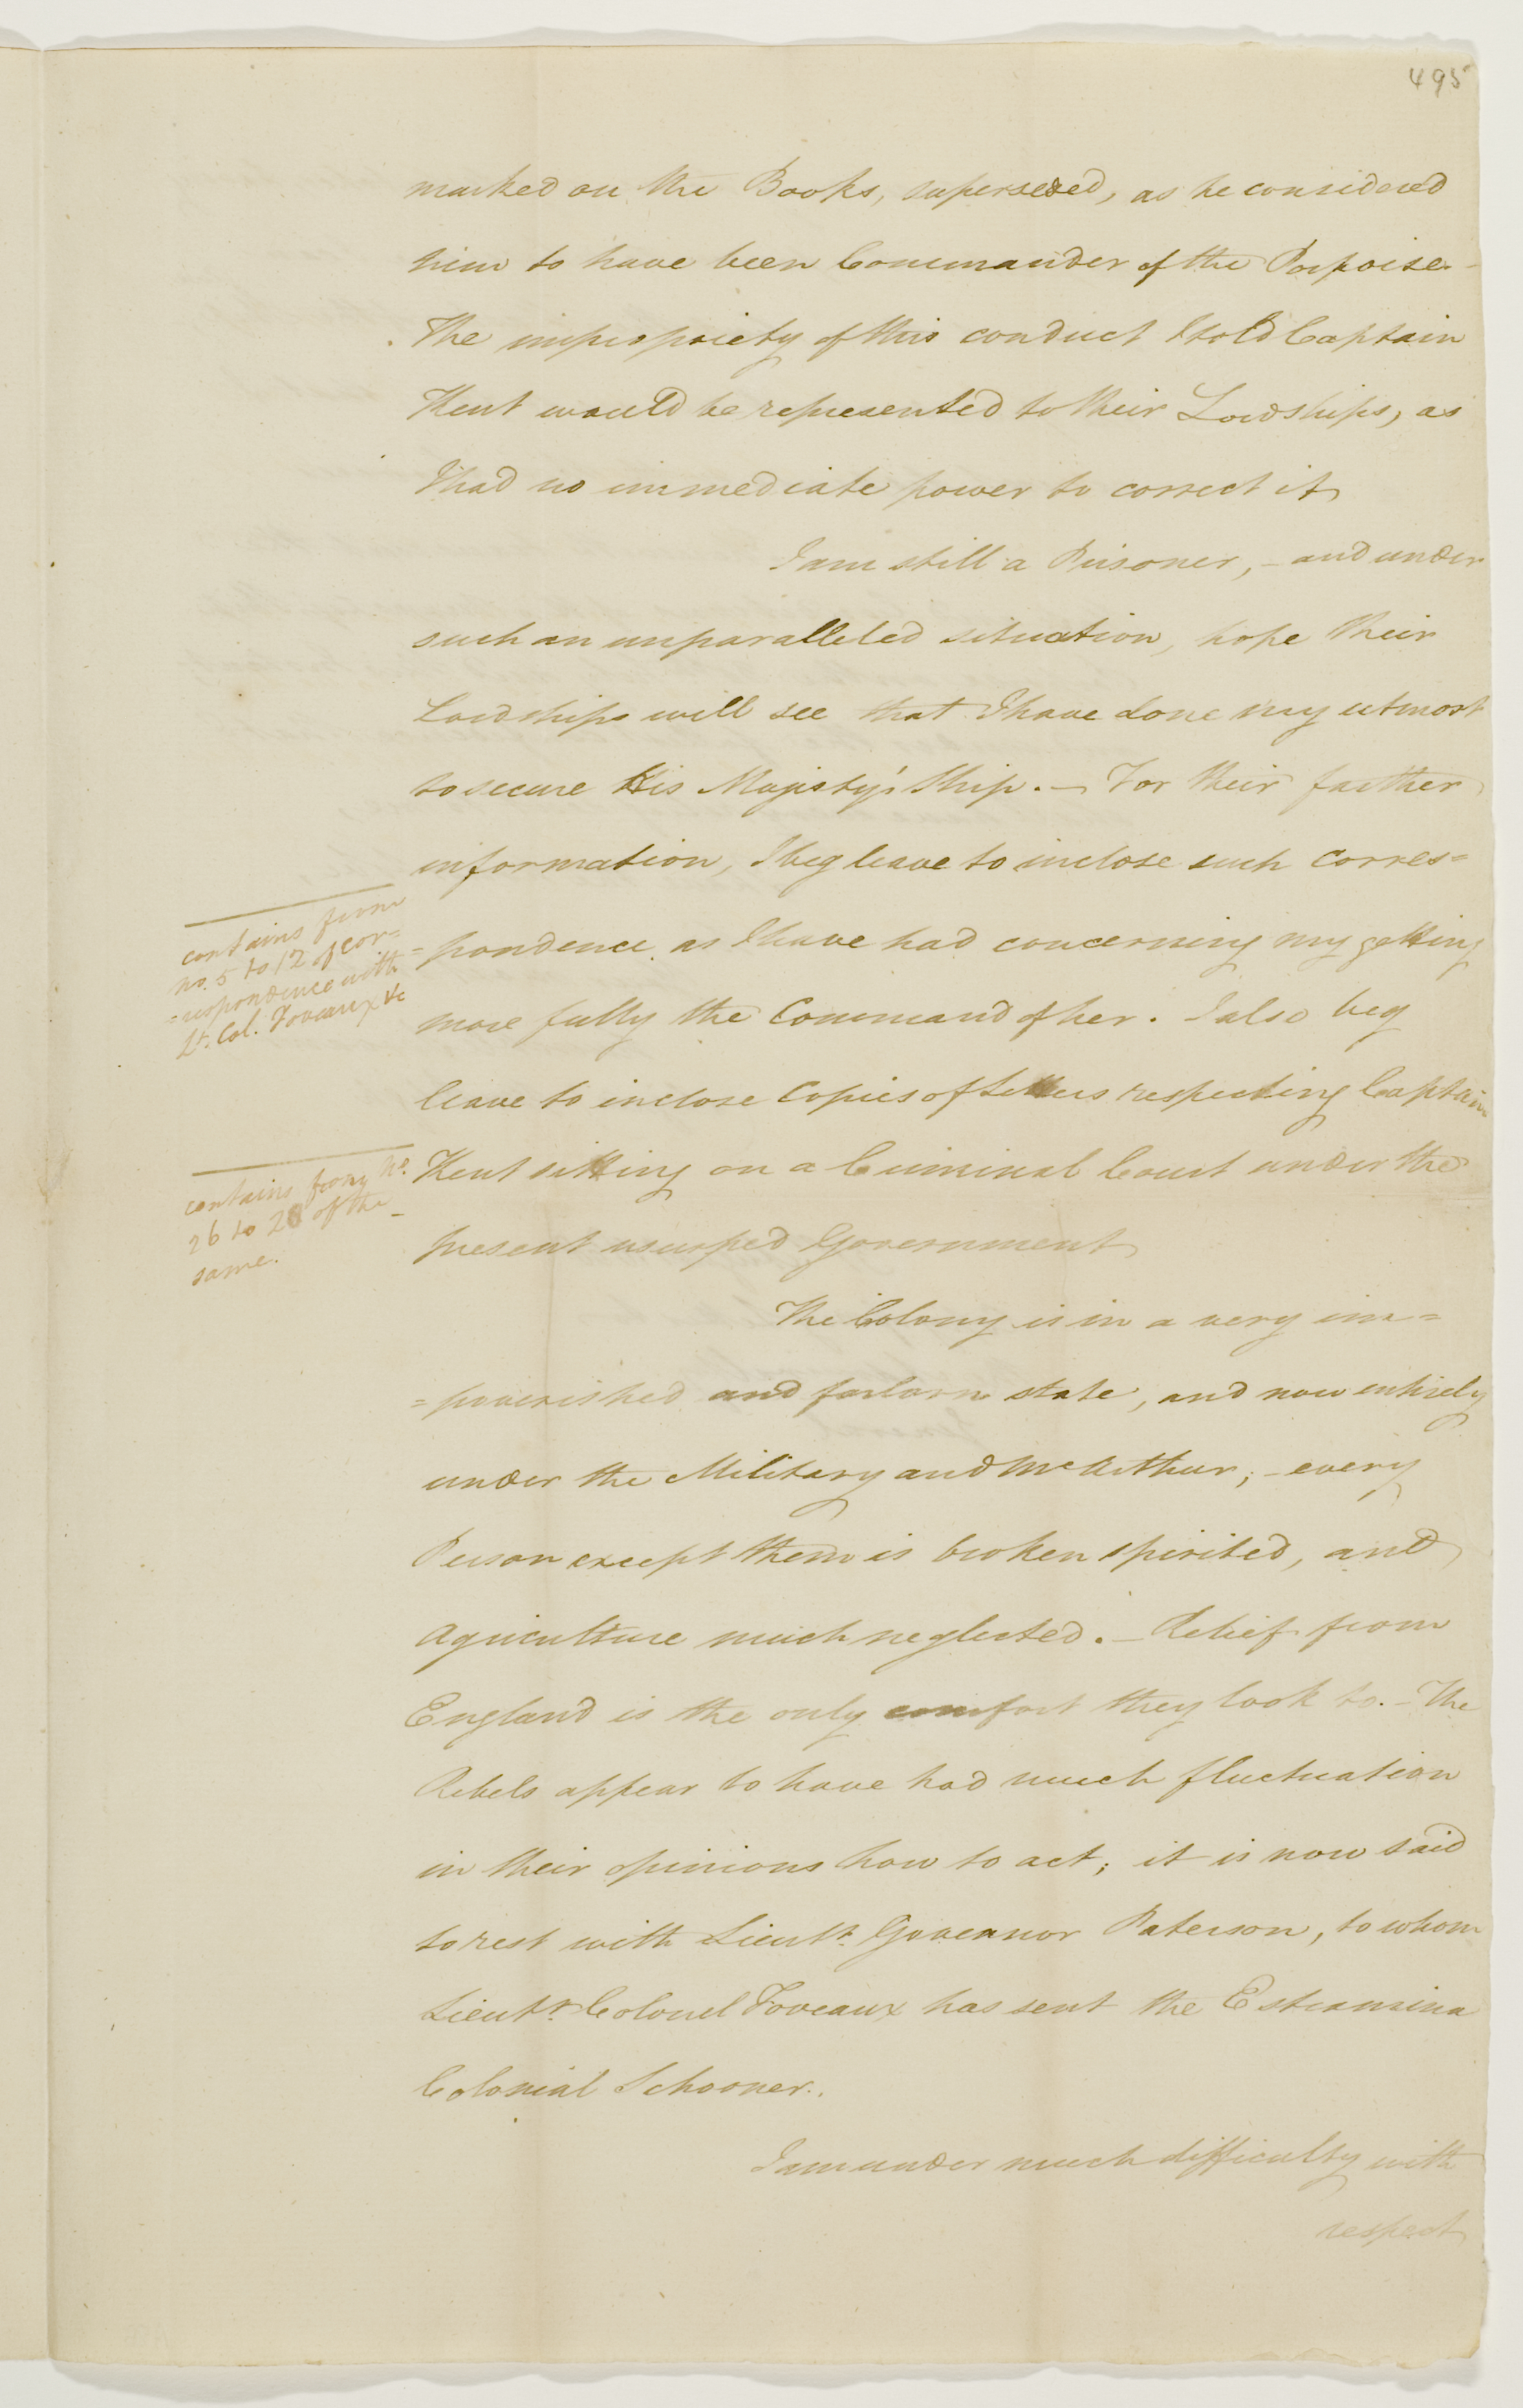 495
marked on the Books, superseded, as he considered
him to have been Commander of the Porpoise.-
The impropriety of this conduct I told Captain
Kent would be represented to their Lordships, as
I had no immediate power to correct it
I am still a Prisoner, - and under
such an unparalleled situation, hope their
Lordships will see that I have done my utmost
to secure His Majesty's Ship. - For their farther
information, I beg leave to inclose such corres=
=pondence as I have had concerning my getting
more fully the Command of her. I also beg
leave to inclose Copies of Letters respecting Captain
Kent sitting on a Criminal Court under the
present usurped Government
contains from
no. 5 to 12 of cor=
=respondence with
Lt. Col. Foveaux &c
contains from No.
26 to 28 of the -
same.
The Colony is in a very im=
=poverished and forlorn state, and now entirely
under the Military and McArthur; - every
Person except them is broken spirited, and
Agriculture much neglected. - Relief from
England is the only comfort they look to. - The
Rebels appear to have had much fluctuation
in their opinions how to act; it is now said
to rest with Lieutt. Governor Paterson, to whom
Lieutt. Colonel Foveaux has sent the Estramina
Colonial Schooner.
I am under much difficulty with
respect